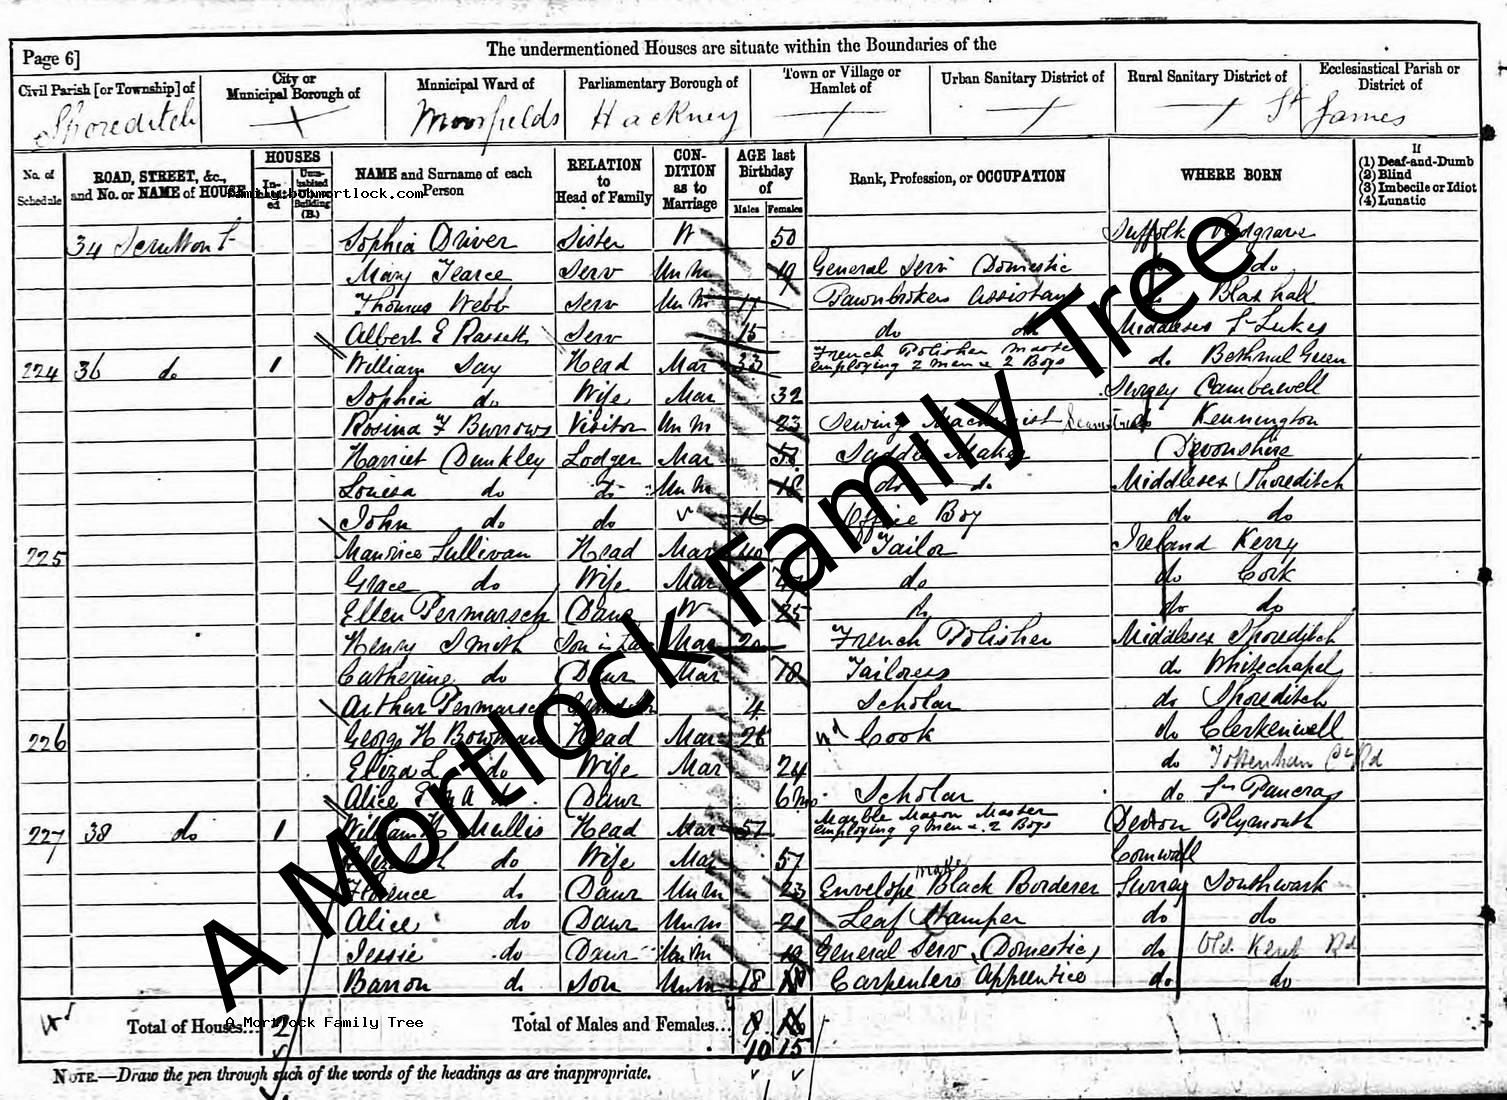 The undermentioned Houses are situate within the Boundaries of the
Page 6]
Civil Parish [or Township] of
Shoreditch
City or Municipal Borough of
Municipal Ward of
Moorfields
Parliamentary Borough of
Hackney
Town or Village or Hamlet of
Urban Sanitary District of
Rural Sanitary District of
Ecclesiastical Parish or District of
St James
No. of Schedule
ROAD, STREET, &c., and No. or NAME of HOUSE
HOUSES
In-habit-ed
Unin-habited Building (B.)
NAME and Surname of each Person
RELATION to Head of Family
CON-DITION as to Marriage
AGE last Birthday of
Males Females
Rank, Profession, or OCCUPATION
WHERE BORN
If
(1) Deaf-and-Dumb
(2) Blind
(3) Imbecile or Idiot
(4) Lunatic
family.bobmortlock.com
34 Scrutton St Sophia Driver Sister W 50 Suffolk Redgrave
Mary Pearce Serv Unm 19 General Serv Domestic do do
Thomas Webb Serv Unm 17 Pawnbrokers Assistant do Blaxhall
Albert E Serv 15 do do Middlesex St Lukes
224 36 do 1 William Say Head Mar 33 French Polisher Master employing 2 men & 2 Boys do Bethnal Green
Sophia do Wife Mar 32 Surrey Camberwell
Rosina F Burrows Visitor Unm 23 Sewing Machinist do Kennington
Harriet Dunkley Lodger Mar Maker Devonshire
Louisa do do Unm 18 do do Middlesex Shoreditch
John do do 16 Office Boy do do
225 Maurice Sullivan Head Mar 40 Tailor Ireland Kerry
Grace do Wife Mar 47 do do Cork
Ellen Permarsch Daur W 25 do do do
Henry Smith Son in Law Mar 20 French Polisher Middlesex Shoreditch
Catherine do Daur Mar 18 Tailoress do Whitechapel
Arthur Permarsch Grandson 4 Scholar do Shoreditch
226 George H Bowman Head Mar 28 Cook do Clerkenwell
Eliza L do Wife Mar 24 do Tottenham Ct Rd
Alice do Daur 6 mo Scholar do St Pancras
227 38 do 1 William H Mullis Head Mar 57 Marble Mason Master employing 9 men & 2 Boys Devon Plymouth
Elizabeth do Wife Mar 57 Cornwall
Florence do Daur Unm 23 Envelope Black Borderer Maker Surrey Southwark
Alice do Daur Unm 21 Leaf Stamper do do
Jessie do Daur Unm 19 General Serv (Domestic) do Old Kent Rd
Barron do Son Unm 18 Carpenters Apprentice do do
Total of Houses... 2
Total of Males and Females...
10 15
NOTE.—Draw the pen through such of the words of the headings as are inappropriate.
A Mortlock Family Tree
A Mortlock Family Tree